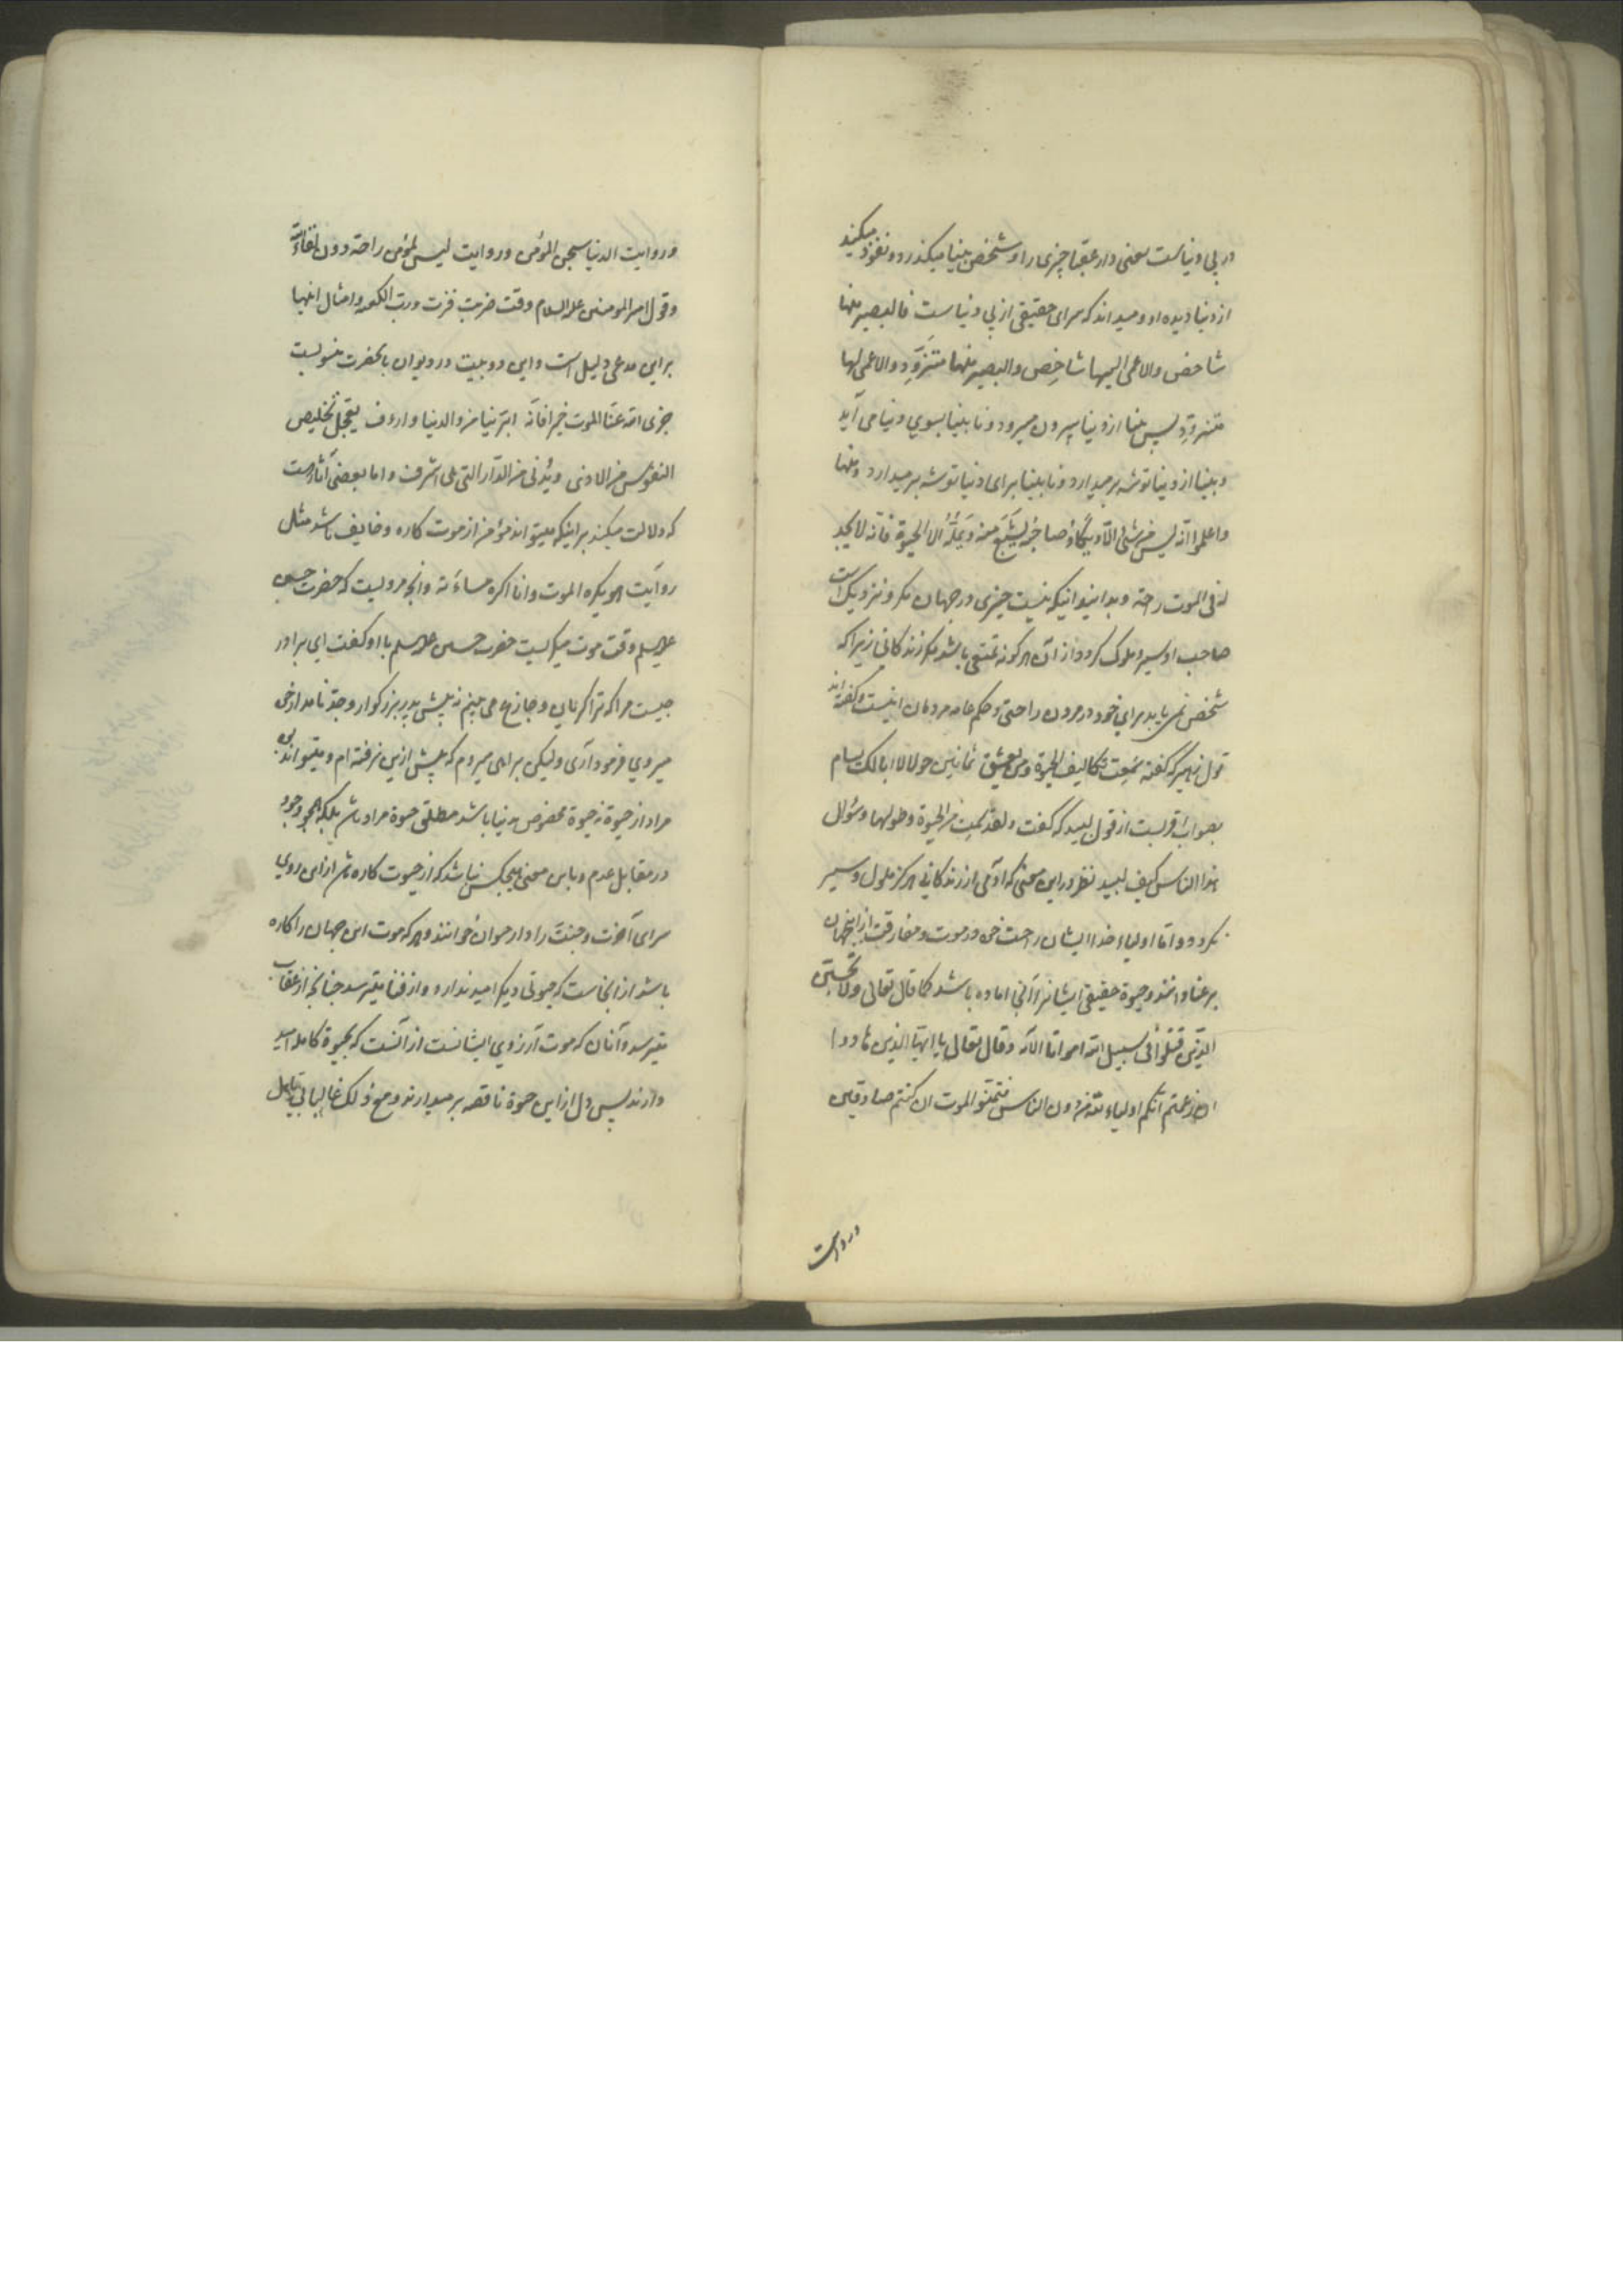 در پی دنیاست یعنی دار عقبا چیزی را و شخص بینا میگذرد و نفوذ میکند
از دنیا دیده او و میداند که سرای حقیقی از پی دنیاست فالبصیر منها
شاخص والاعمی الیها شاخص والبصیر منها متزود والاعمی لها
متزود پس بینا از دنیا بیرون میرود و نابینا بسوی دنیا می آید
و بینا از دنیا توشه بر میدارد و نابینا برای دنیا توشه بر میدارد و منها
واعلموا انه لیس من شئ الا ویکاد صاحبه یشبع منه ویمله الا الحیوة فانه لا یجد
له فی الموت راحة و بدانید اینکه نیست چیزی در جهان مگر و نزدیک است
صاحب او سیر و ملوک گردد از آن هر گونه تمتعی باشد مگر زندگانی زیرا که
شخص نمی یابد برای خود در مردن راحتی و حکم عامه مردمان اینست و گفته اند
قول زهیر که گفته سئمت تکالیف الحیوة ومن یعش ثمانین حولا لا ابا لک یسام
بصواب اقربست از قول لبید که گفت ولقد سئمت من الحیوة وطولها وسؤال
هذا الناس کیف لبید نظر در این معنی که آدمی از زندگانی هرگز ملول و سیر
نگردد و اما اولیاء خدا ایشان راحت خود در موت و مفارقت از اینجهان
بر عنا دانند و حیوة حقیقی ایشانرا آنجا اماده باشد کما قال تعالی ولا تحسبن
الذین قتلوا فی سبیل الله امواتا الآیه وقال تعالی یا ایها الذین هادوا
ان زعمتم انکم اولیاء لله من دون الناس فتمنوا الموت ان کنتم صادقین
در روایت
و روایت الدنیا سجن المؤمن و روایت لیس لمؤمن راحة دون لقاء الله
و قول امیر المومنین علیه السلام وقت ضربت فزت ورب الکعبه و امثال اینها
براین مدعی دلیل است و این دو بیت در دیوان بانحضرت منسوبست
جزی الله عنا الموت خیرا فانه ابر بنا من والدنیا وارءف یعجل تخلیص
النفوس من الاذی ویدنی من الدار التی هی اشرف و اما بعضی آثار هست
که دلالت میکند بر اینکه میتواند مؤمن از موت کاره و خایف باشد مثل
روایت هو یکره الموت وانا اکره مساءته و آنچه مرویست که حضرت حسن
علیه السلم وقت موت میگریست حضرت حسین علیه السلم با او گفت ای برادر
چیست مرا که ترا گریان و جازع می بینم نه پیش پدر بزرگوار و جد نامدار خود
میروی فرمود آری ولیکن براهی میروم که پیش ازین نرفته ام و میتواند بود
مراد از حیوة نه حیوة مخصوص بدنیا باشد مطلق حیوة مراد باشد بلکه همچو وجود
در مقابل عدم و باین معنی هیچکس نباشد که از حیوت کاره باشد ازاین روی
سرای آخرت و جنت را دار حیوان خوانند و هر که موت این جهان را کاره
باشد از آنجاست که حیوتی دیگر امید ندارد و از فنا میترسد چنانچه از عقاب
میترسد و آنان که موت آرزوی ایشانست از آنست که بحیوة کامله امید
دارند پس دل از این حیوة ناقصه بر میدارند و مع ذلک غالبا بی